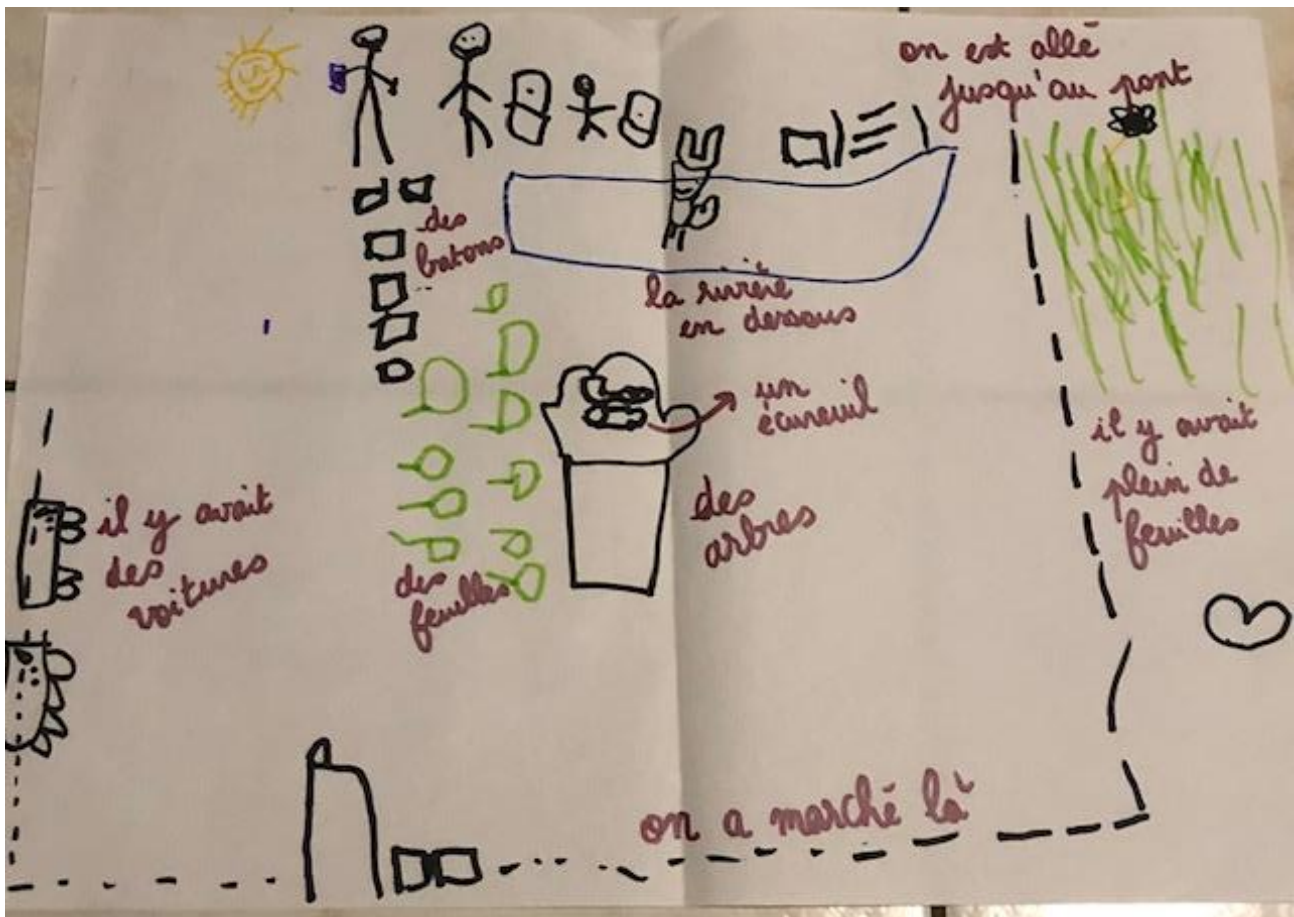 on est allé
jusqu'au pont
des
batons
la rivière
en dessous
un
écureuil
il y avait
plein de
feuilles
il y avait
des
voitures
des
arbres
des
feuilles
on a marché là